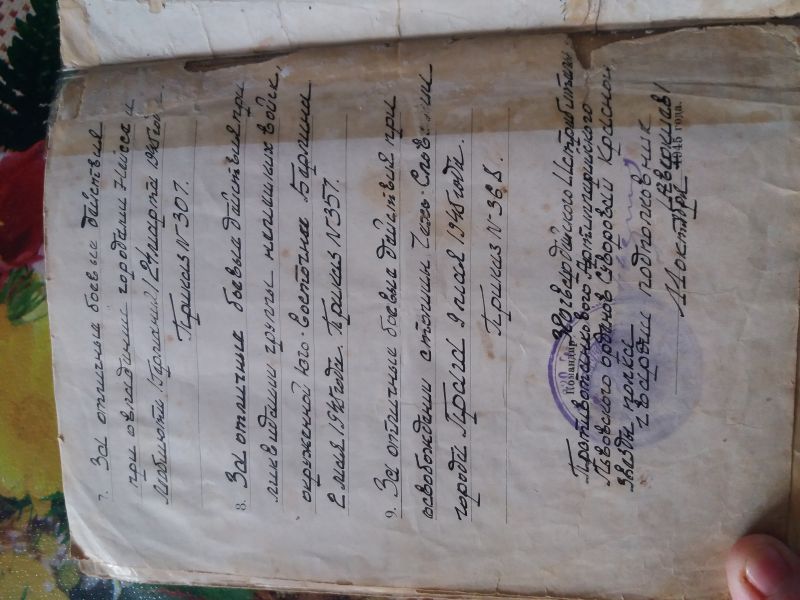 7. За отличные боевые действия
при овладении городами Нейсса и
Леобшютц (Германия) 24 марта 1945 года
Приказ № 307.
8. За отличные боевые действия при
ликвидации группы немецких войск,
окруженной юго-восточнее Берлина
2 мая 1945 года. Приказ № 357.
9. За отличные боевые действия при
освобождении столицы Чехо-Словакии
города Прага 9 мая 1945 года.
Приказ № 368.
Командир гвардейского Истребительно
Противотанкового Артиллерийского
Львовского орденов Суворова и Красной
звезды полка
гвардии подполковник
октября 1945 года.